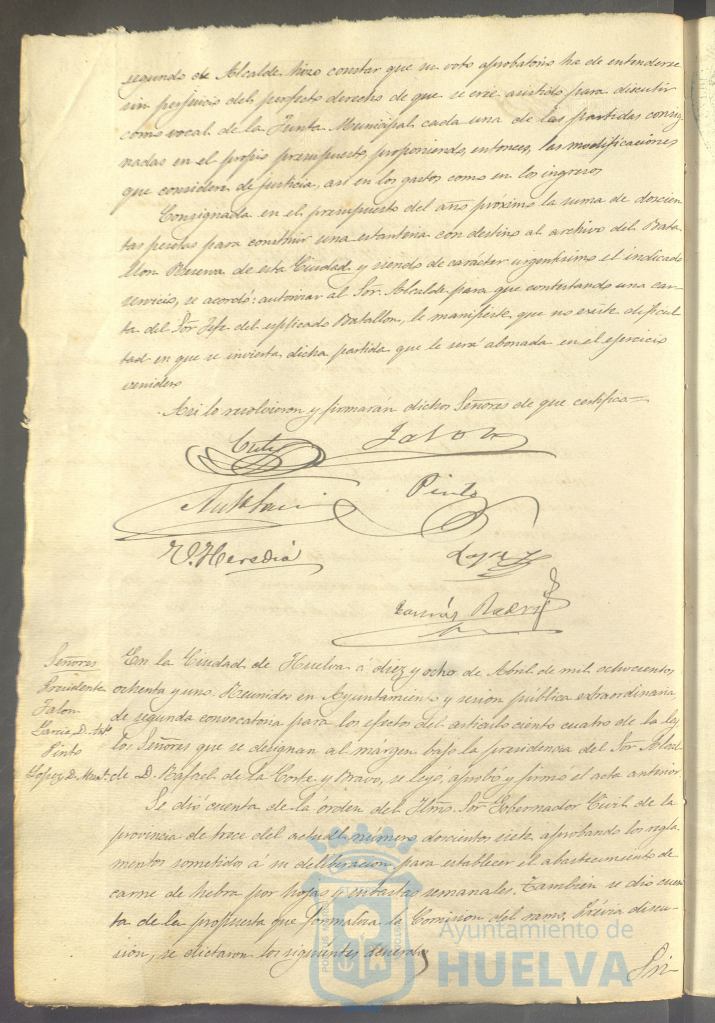 segundo de Alcalde hizo constar que su voto aprobatorio ha de entenderse
sin perjuicio del perfecto derecho de que se cree asistido para discutir
como vocal de la Junta Municipal cada una de las partidas consig
nadas en el propio presupuesto, proponiendo, entonces, las modificaciones
que considera de justicia, asi en los gastos como en los ingresos
Consignada en el presupuesto del año próximo la suma de doscien
tas pesetas para construir una estanteria con destino al archivo del Bata
llon Reserva de esta Ciudad y siendo de carácter urgentisimo el indicado
servicio, se acordó: autorizar al Sor. Alcalde para que contestando una car
ta del Sor Jefe del esplicado Batallon, le manifieste que no existe dificul
tad en que se invierta dicha partida que le será abonada en el ejercicio
venidero
Asi lo resolvieron y firmarán dichos Señores de que certifico=
Pinto
V. Heredia
Lopez
Tomás
Señores
Presidente
Jalon
Garcia D. Anto
Pinto
Lopez D. Manl.
En la Ciudad de Huelva á diez y ocho de Abril de mil ochocientos
ochenta y uno. Reunidos en Ayuntamiento y sesion pública extraordinaria,
de segunda convocatoria para los efectos del articulo ciento cuatro de la ley
los Señores que se designan al márgen bajo la presidencia del Sor Alcal
de D. Rafael de la Corte y Bravo, se leyó, aprobó y firmó el acta anterior.
Se dió cuenta de la órden del Iltmo. Sor Gobernador Civil de la
provincia de trece del actual número doscientos siete, aprobando los regla
mentos sometidos á su deliberacion para establecer el abastecimiento de
carne de hebra por hojas y subastas semanales. Tambien se dió cuen
ta de la propuesta que formaliza la Comision del ramo. Prévia discu-
sion, se dictaron los siguientes acuerdos
Pri-
Ayuntamiento de
HUELVA